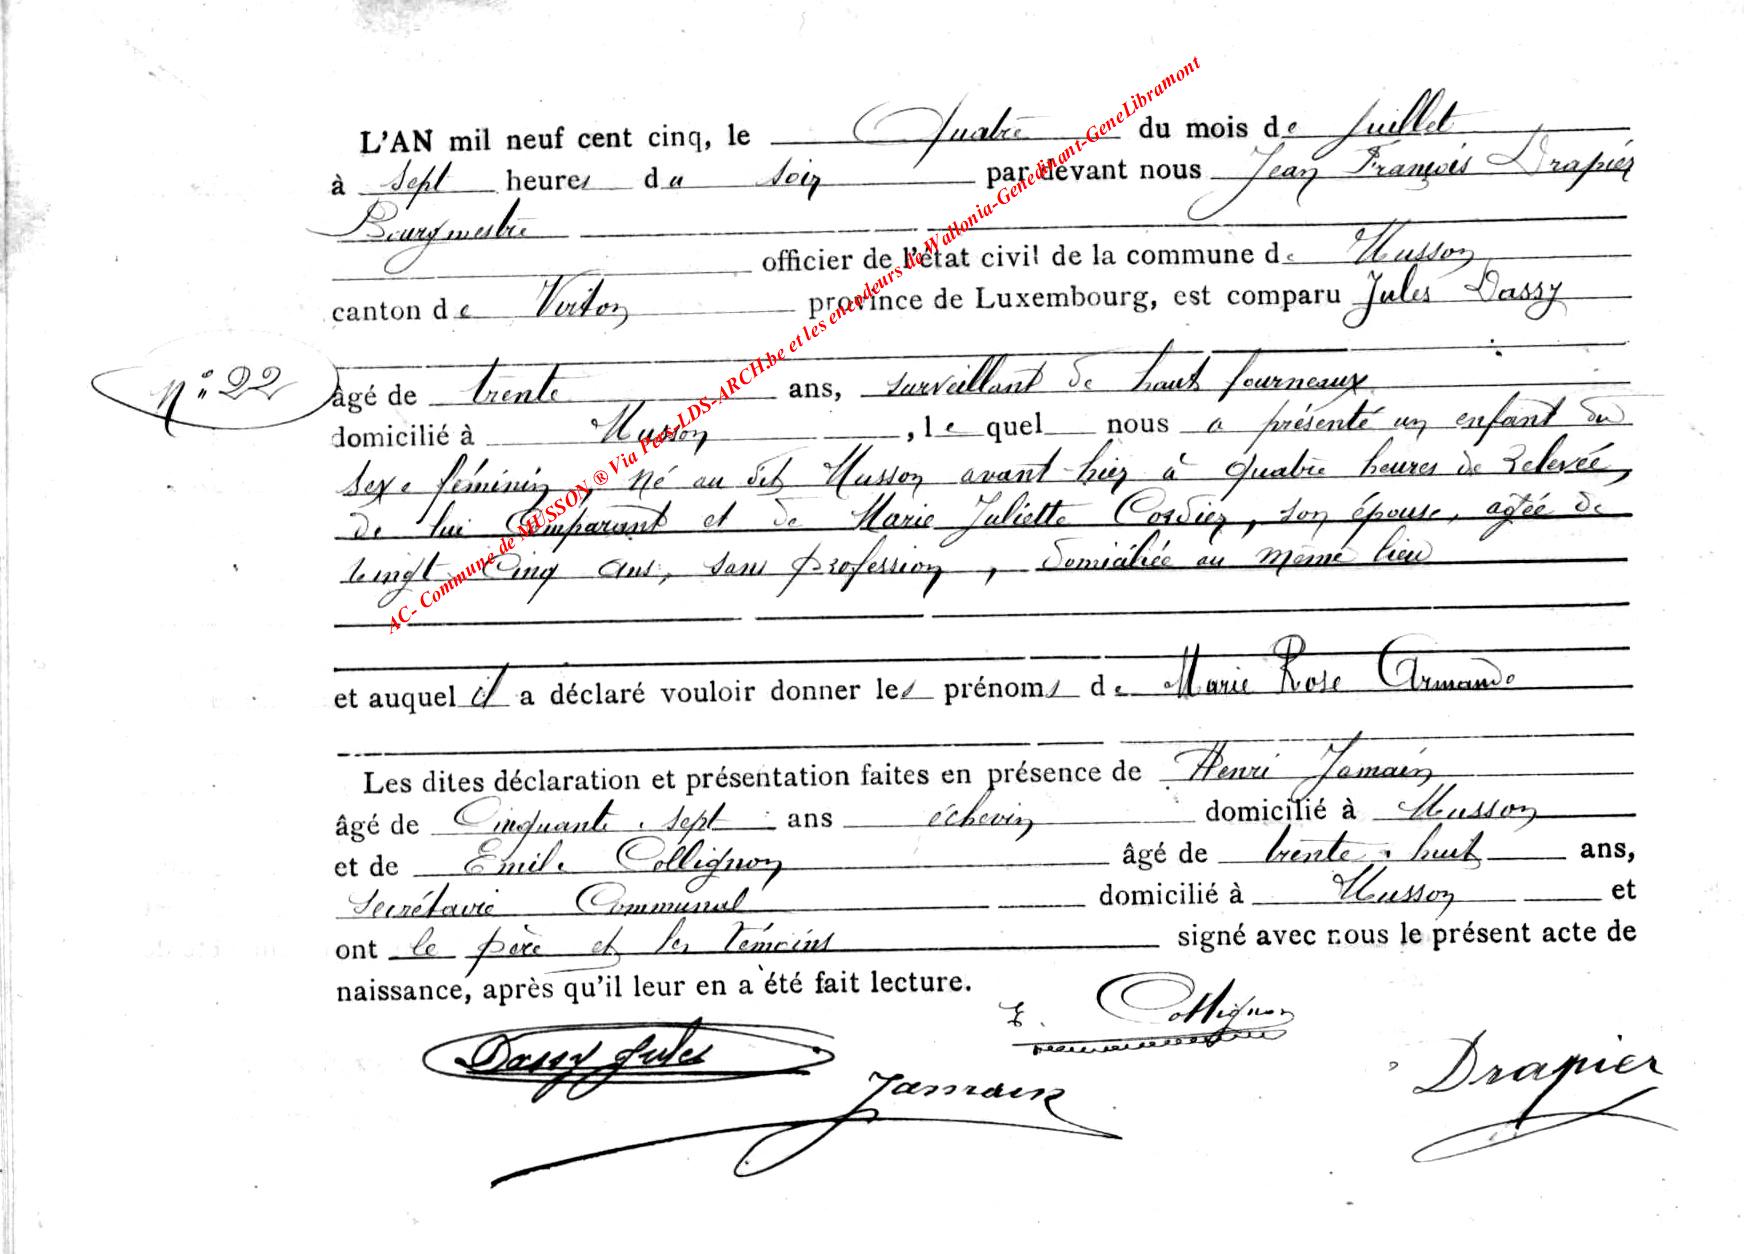 L'AN mil neuf cent cinq, le Quatre du mois de Juillet
à sept heures du soir par devant nous Jean François Drapier
Bourgmestre
officier de l'état civil de la commune de Musson
canton de Virton province de Luxembourg, est comparu Jules Dassy
N° 22
âgé de trente ans, surveillant de haut fourneaux
domicilié à Musson, le quel nous a présenté un enfant du
sexe féminin, né au dit Musson avant-hier à quatre heures de relevée,
de lui Comparant et de Marie Juliette Cordier, son épouse, agée de
vingt cinq ans, sans profession, domiciliée au même lieu
et auquel il a déclaré vouloir donner les prénoms de Marie Rose Armande
Les dites déclaration et présentation faites en présence de Henri Jamain
âgé de Cinquante-sept ans échevin domicilié à Musson
et de Emile Collignon âgé de trente-huit ans,
secrétaire Communal domicilié à Musson et
ont le père et les témoins signé avec nous le présent acte de
naissance, après qu'il leur en a été fait lecture.
E. Collignon
Dassy Jules
Jamain
Drapier
AC- Commune de MUSSON ® Via Pers-LDS-ARCH.be et les encodeurs de Wallonia-Genedinant-GeneLibramont